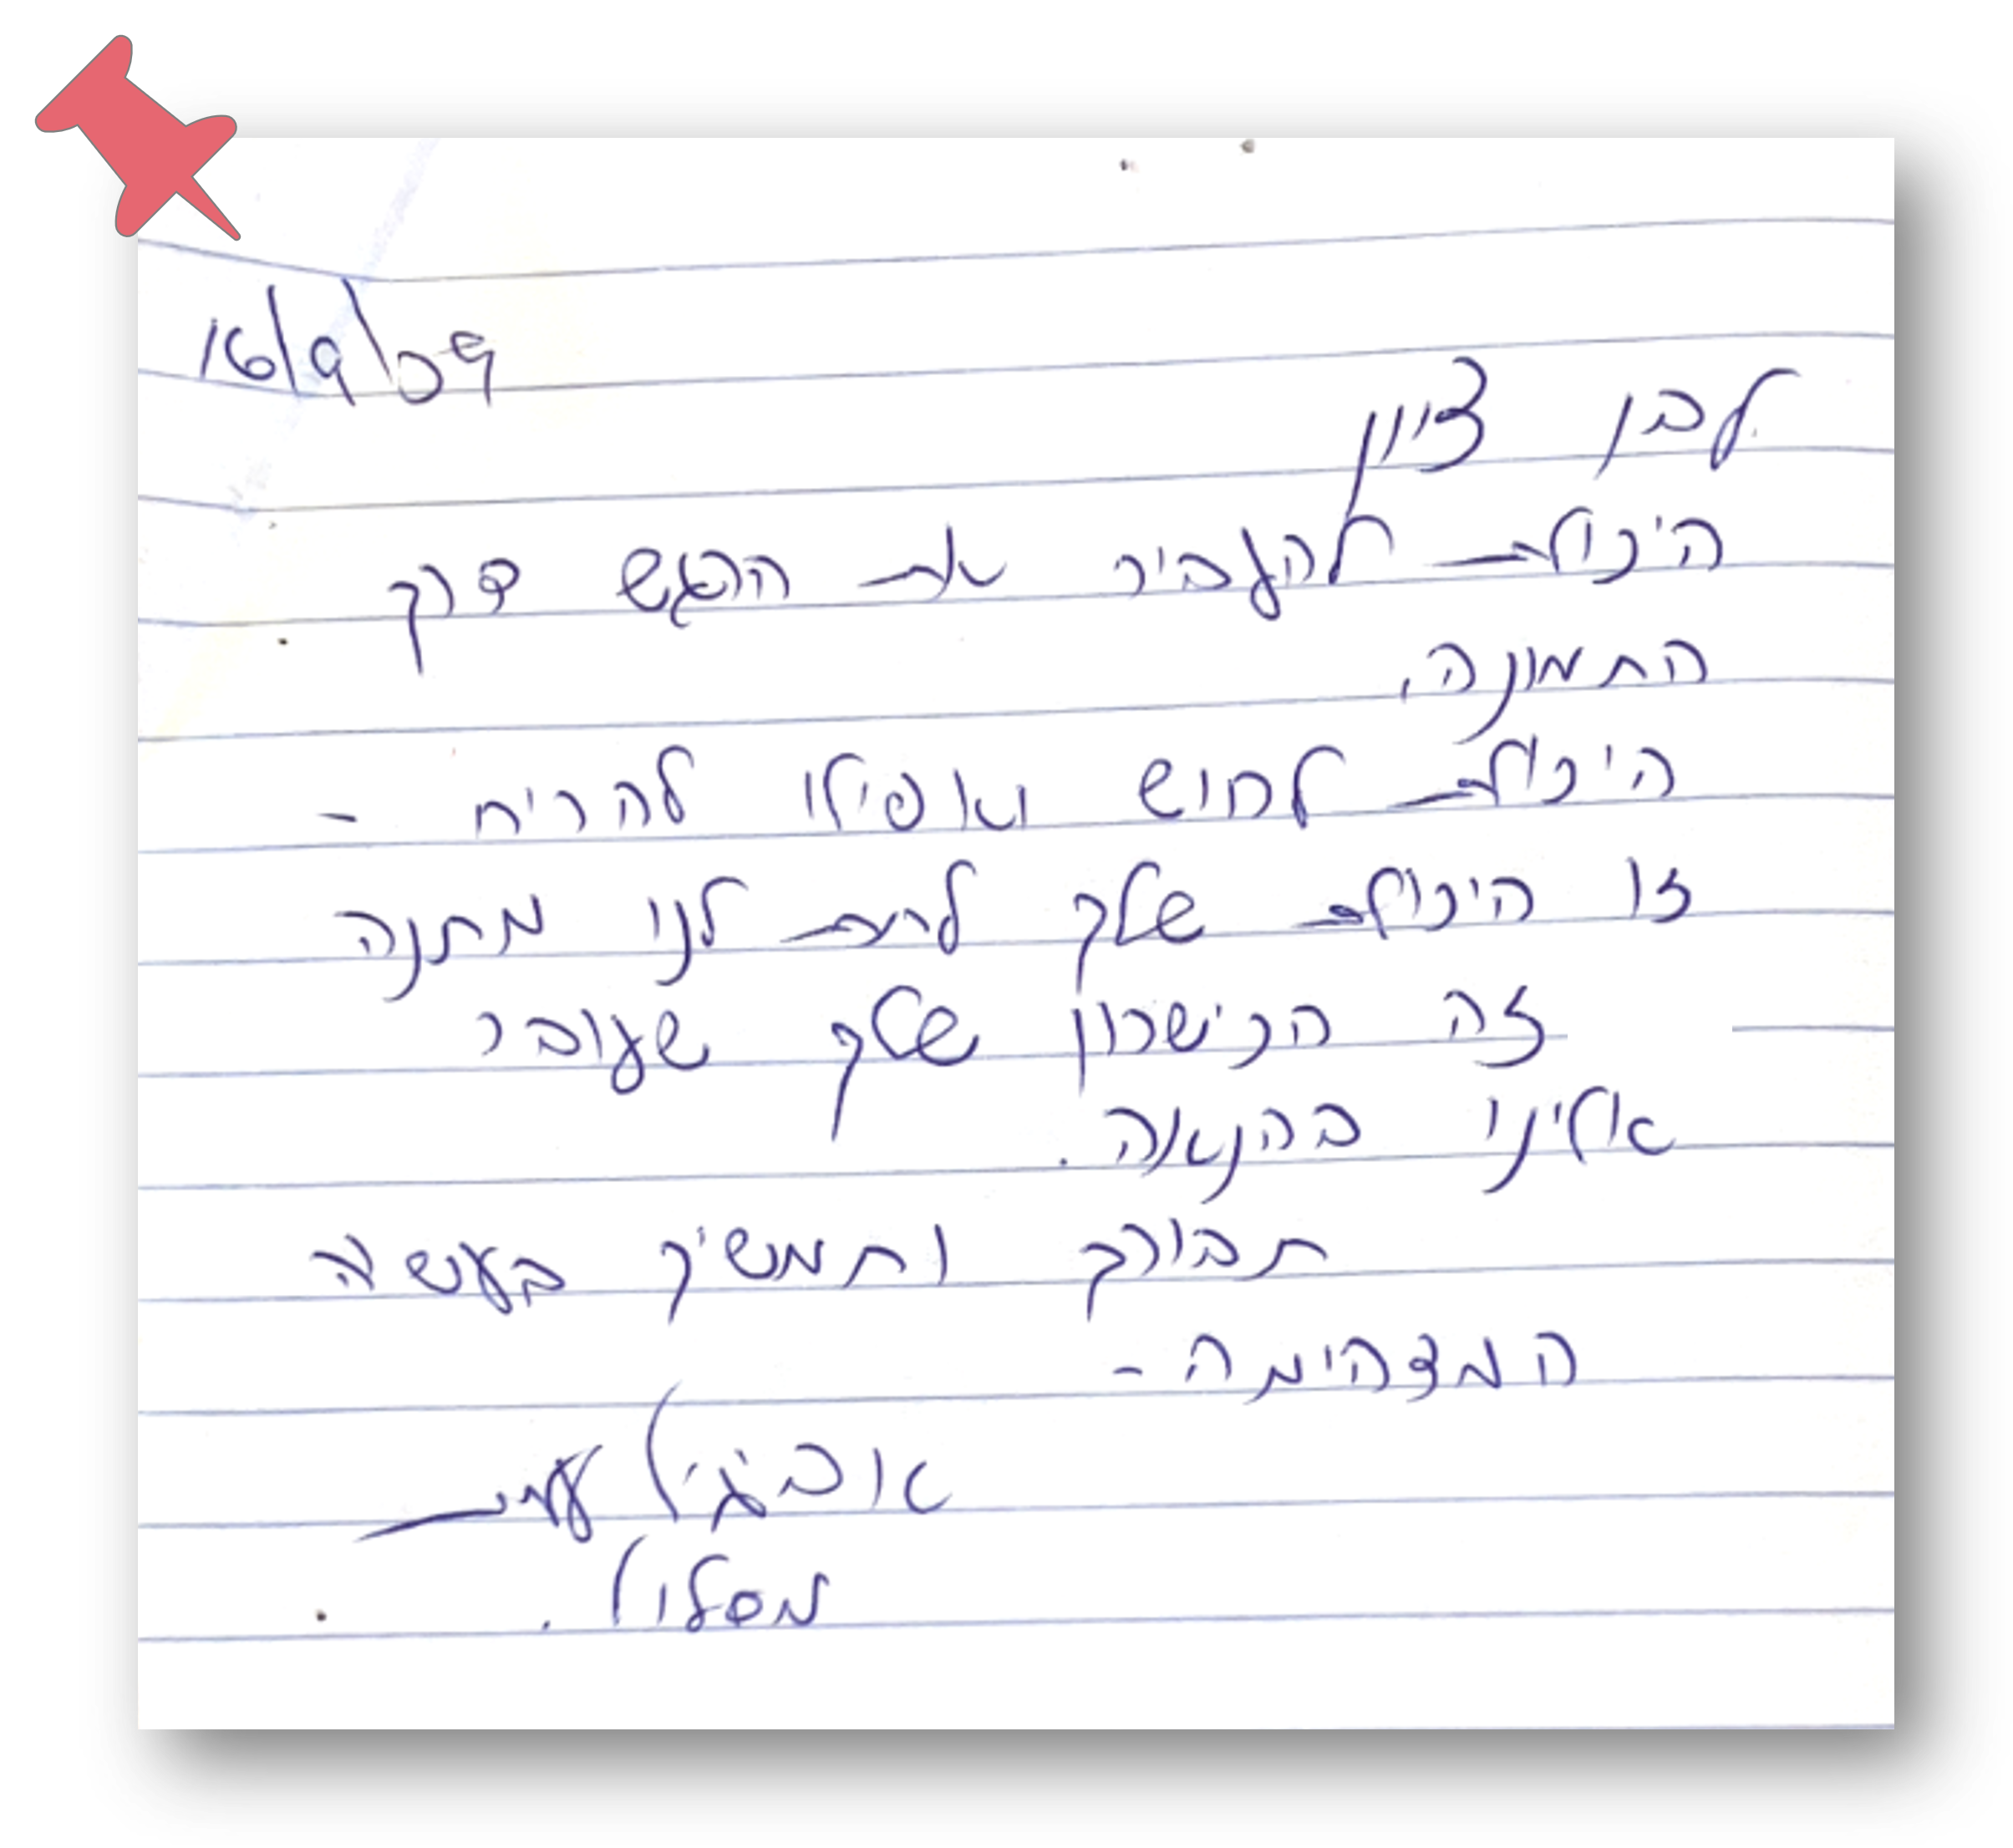 16/9/09
לבן ציון
היכולת להעביר את הרגש דרך
התמונה,
היכולת לחוש ואפילו להריח -
זו היכולת שלך לתת לנו מתנה
זה הכישרון שלך שעובר
אלינו בהנאה.
תבורך ותמשיך בעשיה
המדהימה -
אביגיל
מסלול.